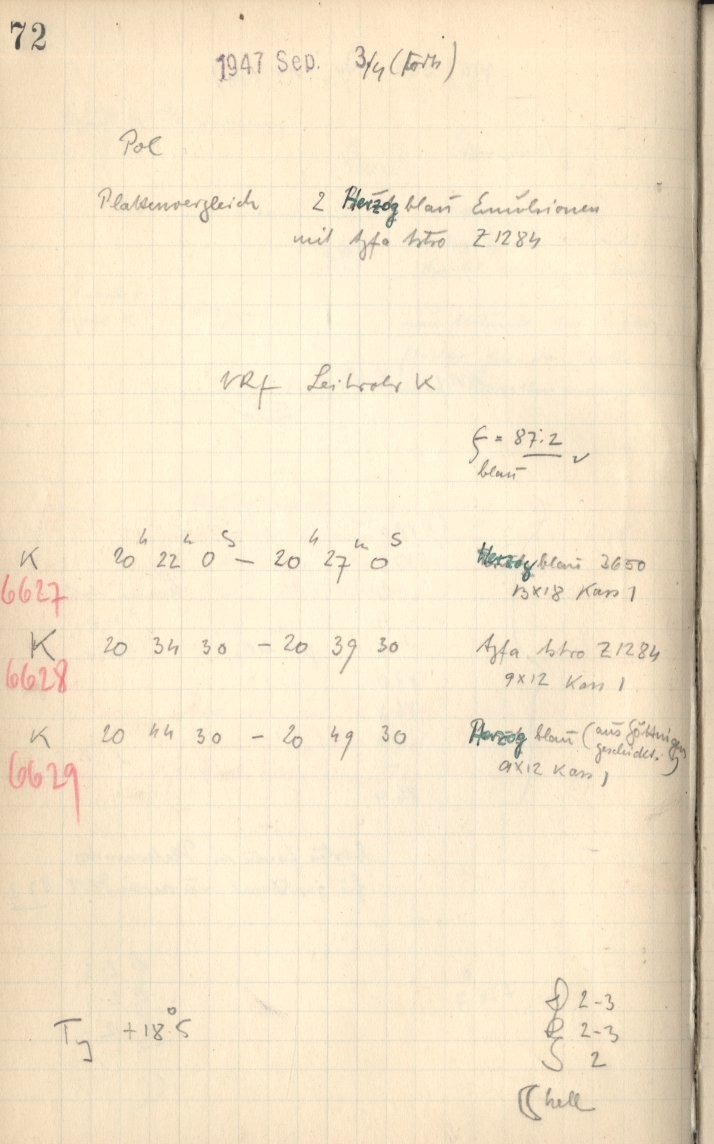 72
1947 Sep. 3/4 (Forts)
Pol
Plattenvergleich 2 Herzog blau Emulsionen
mit Agfa Astro Z1284
Leitrohr K
= 87.2
blau
K 20h 22m 0s – 20h 27m 0s Herzog blau 3650
6627 13x18 Kass 1
K 20 34 30 – 20 39 30 Agfa Astro Z1284
6628 9x12 Kass 1
K 20 44 30 – 20 49 30 Herzog blau (aus Göttingen
geschickt.)
6629 9x12 Kass 1
2-3
T +18°5 2-3
2
hell